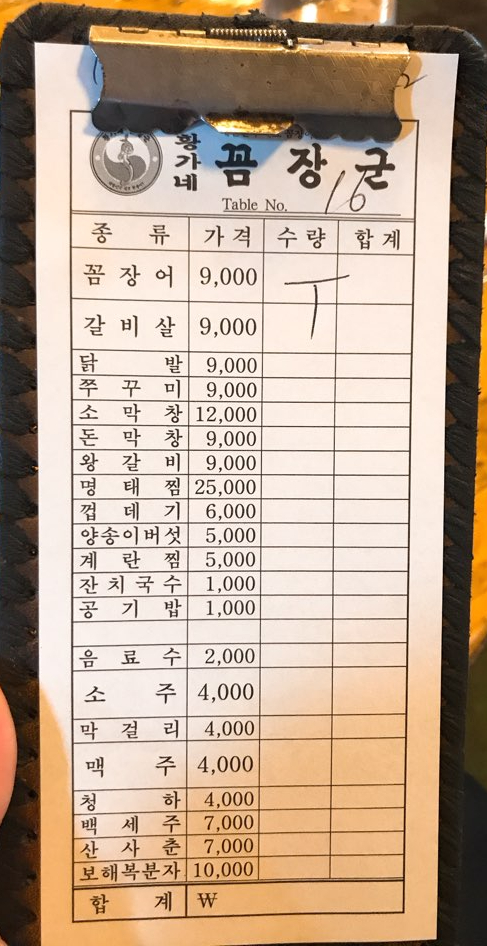 황가네 꼼장군
Table No. 16
종류 가격 수량 합계
꼼장어 9,000 T
갈비살 9,000
닭발 9,000
쭈꾸미 9,000
소막창 12,000
돈막창 9,000
왕갈비 9,000
명태찜 25,000
껍데기 6,000
양송이버섯 5,000
계란찜 5,000
잔치국수 1,000
공기밥 1,000
음료수 2,000
소주 4,000
막걸리 4,000
맥주 4,000
청하 4,000
백세주 7,000
산사춘 7,000
보해복분자 10,000
합계 ₩